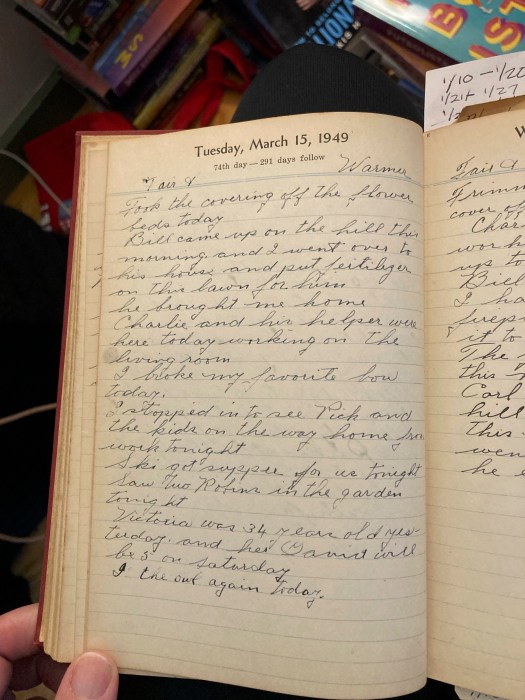 1/10 - 1/20
1/21 1/27
Tuesday, March 15, 1949
74th day — 291 days follow
Fair & Warmer
Took the covering off the flower
beds today
Bill came up on the hill this
morning and I went over to
his house and put feitilizer
on this lawn for him
he brought me home
Charlie and his helper were
here today working on the
living room
I broke my favorite bow
today.
I stopped in to see Pick and
the kids on the way home from
work tonight
Ski got supper for us tonight
Saw two Robins in the garden
tonight
Victoria was 34 years old yes-
terday and her David will
be 5 on Saturday
I the owl again today.
W
Fair &
Trimm
cover of
Char
work
ups to
Bill
I ha
it to
The
this
Carl
hill
this
wen
he